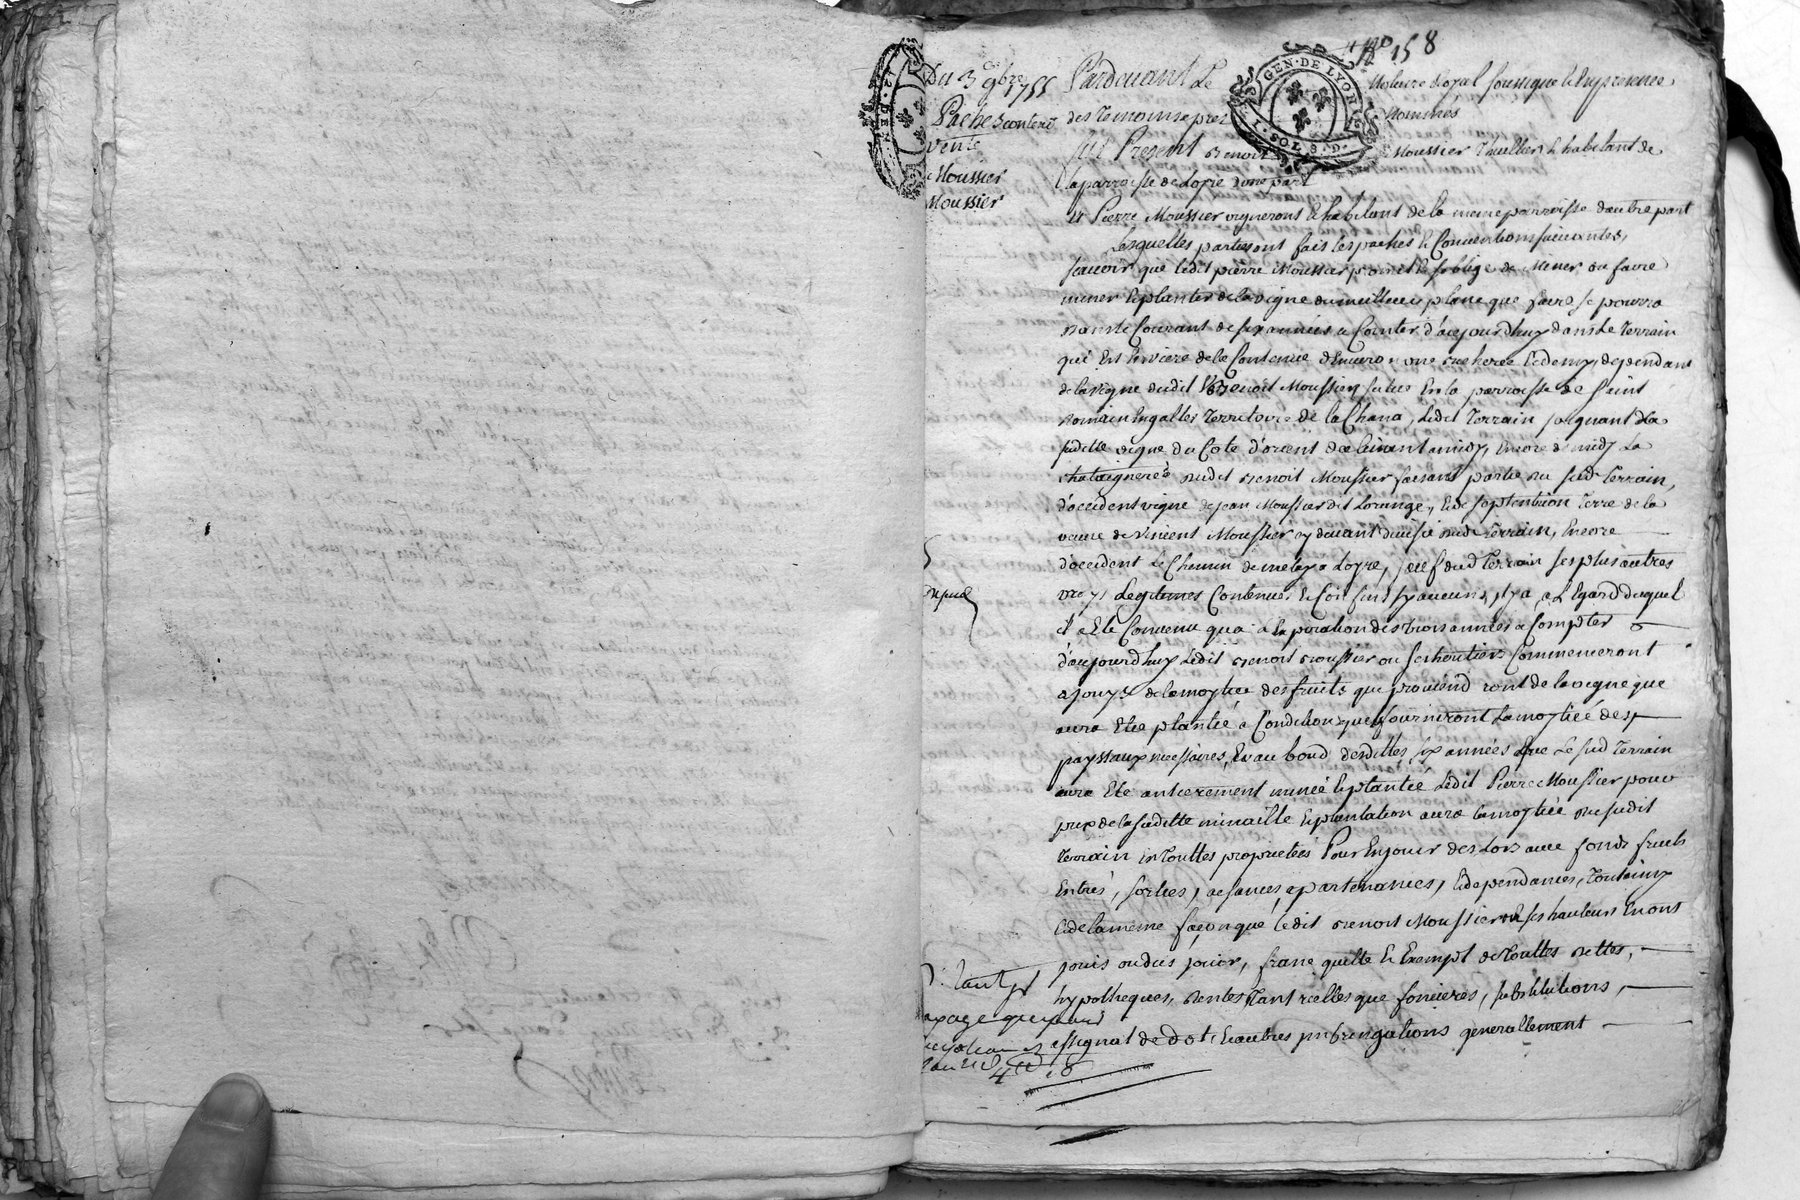 158
GEN·DE LYON
I·SOL 8·D.
Du 3 9bre 1755
Paches contenant
vente
Moussier
Moussier
Pardevant Le Notaire Royal soussigné & En presence
des Temoins apres Nommés
fut Present Benoit Moussier Thuillier & habitant de
la parroisse de Loyre d'une part
Et Pierre Moussier vigneront & habitant de la meme parroisse d'autre part
Lesquelles parties ont fait les paches & Conventions suivantes,
scavoir que ledit pierre Moussier promet & s'oblige de Miner ou faire
miner & planter de la vigne du meilleur plant que faire se pourra
dans le Courant de six années a Compter d'aujourdhuy dans Le Terrain
qui Est de la Contenue d'Environ une bicherée & demy, dependant
de la vigne dudit Benoit Moussier, située En la parroisse de saint
Romain Engalles Territoire de la Chana, Ledit Terrain joignant La
susditte vigne du Coté d'orient declinant a midy, Encore de midy La
chataigneré dudit Benoit Moussier faisant partie du susd Terrain,
d'occident vigne de jean Moussier dit Lorange, & de septentrion Terre de la
veuve de Vincent Moussier cy devant divisé dudt Terrain, Encore
d'occident Le Chemin de a Loyre, sauf dud Terrain ses plus autres
vrays Legitimes Contenues & Confins sy aucuns il y a, a L'Egard duquel
il a Eté Convenu qu'a L'Expiration des trois années a Compter
d'aujourdhuy Ledit Benoit Moussier ou ses heritiers Commenceront
a jouyr de la moytiée des fruits que proviend ront de la vigne que
aura Eté plantée a Condition quil fourniront La moytiée des
payssaux necessaires, Et au bout desdittes six années que Le susd Terrain
aura Eté entierement minée & plantée Ledit Pierre Moussier pour
prix de la susditte minaille & plantation aura la moytiée du susdit
Terrain En Touttes proprietées Pour En jouir des Lors avec fonds fruits
Entrés, sorties, aisances, apartenances, & dependances, Toutainsy
& de la meme façon que ledit Benoit Moussier & ses hauteurs En ont
jouis ou dus jouir, franc quitte & Exempt de Touttes dettes,
hypotheques, Rentes Tant reelles que foncieres, substitutions,
assignat de dot, & autres generallement